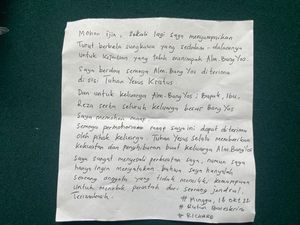 Mohon ijin, sekali lagi saya menyampaikan
Turut berbela sungkawa yang sedalam-dalamnya
untuk kejadian yang telah menimpah Alm. Bang Yos.
Saya berdoa semoga Alm. Bang Yos diterima
di sisi Tuhan Yesus Kristus
Dan untuk keluarga Alm. Bang Yos ; Bapak, Ibu,
Reza serta seluruh keluarga besar Bang Yos
Saya memohon maaf
Semoga permohonan maaf saya ini dapat di terima
oleh pihak keluarga. Tuhan Yesus selalu memberikan
kekuatan dan penghiburan buat keluarga Alm. Bang Yos
Saya sangat menyesali perbuatan saya, namun saya
hanya ingin menyatakan bahwa saya hanyalah
seorang anggota yang tidak memiliki kemampuan
Untuk menolak perintah dari seorang jendral.
Terimakasih.
# Minggu, 16 okt 22
# Rutan Bareskrim
# RICHARD